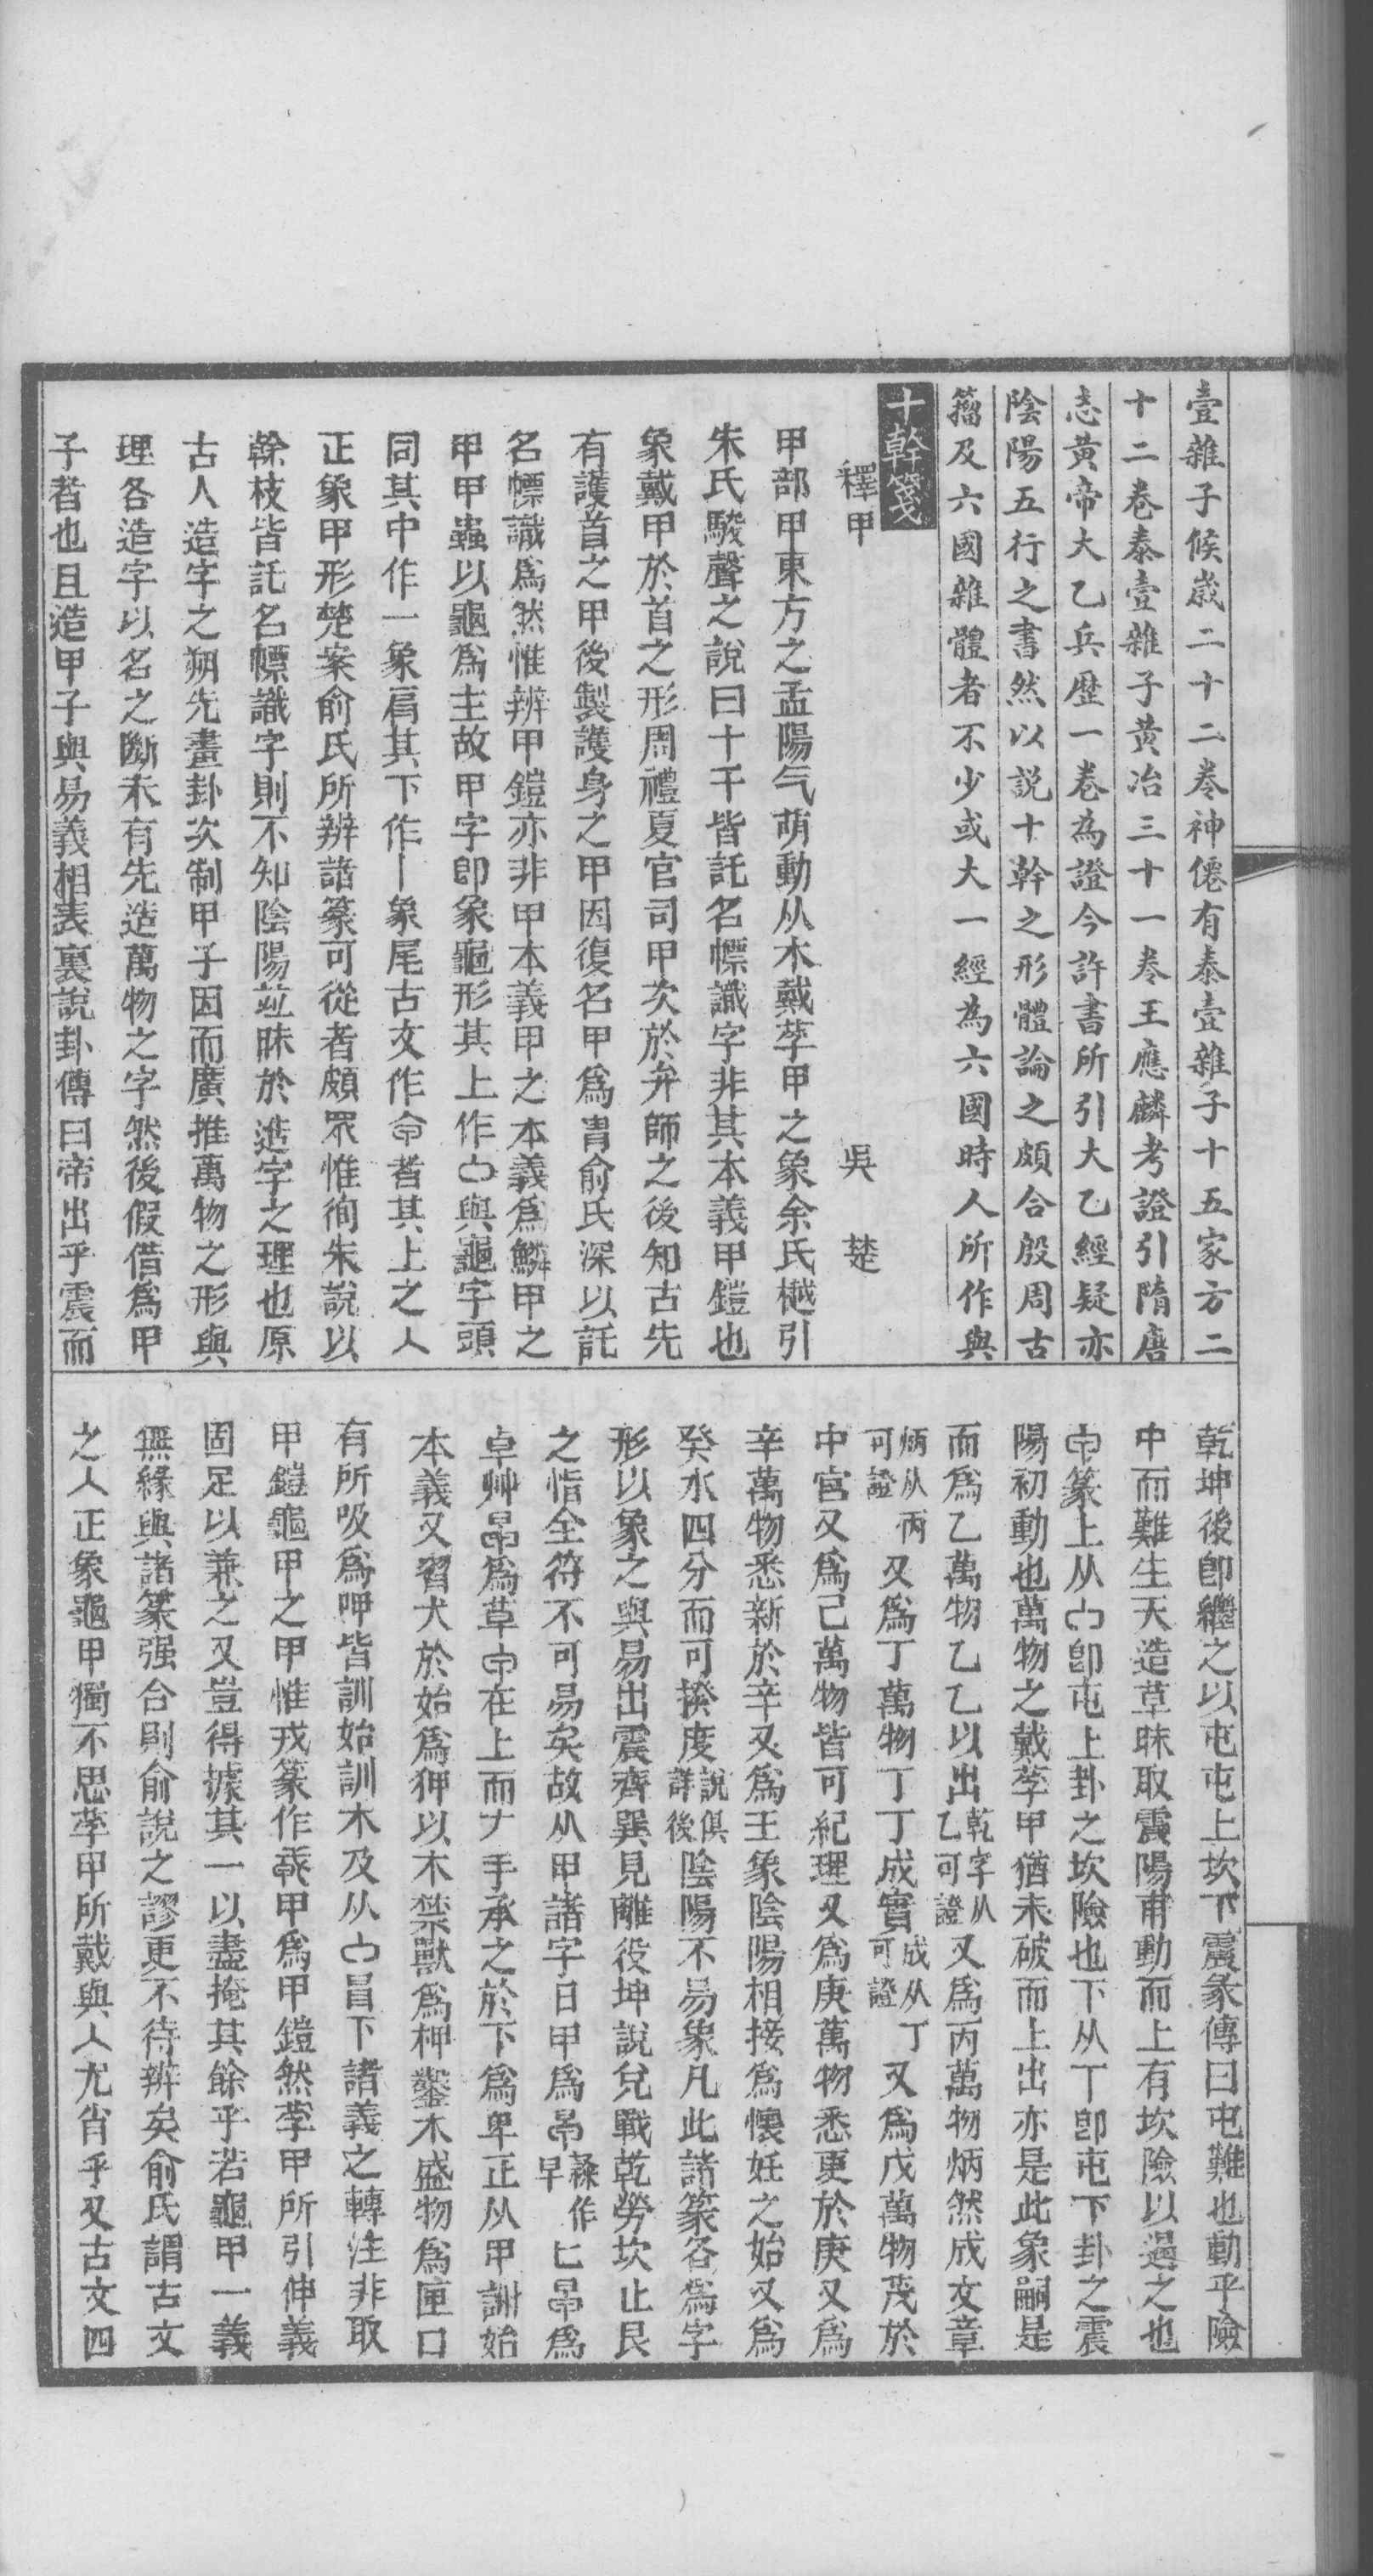 壹雜子候歲二十二卷神僊有泰壹雜子十五家方二
十二卷泰壹雜子黃冶三十一卷王應麟考證引隋唐
志黃帝大乙兵歷一卷為證今許書所引大乙經疑亦
陰陽五行之書然以說十幹之形體論之頗合殷周古
籀及六國雜體者不少或大一經為六國時人所作與
十幹箋
釋甲　吳　楚
甲部甲東方之孟陽气萌動从木戴孚甲之象余氏樾引
朱氏駿聲之說曰十干皆託名幖識字非其本義甲鎧也
象戴甲於首之形周禮夏官司甲次於弁師之後知古先
有護首之甲後製護身之甲因復名甲爲冑俞氏深以託
名幖識爲然惟辨甲鎧亦非甲本義甲之本義爲鱗甲之
甲甲蟲以龜爲主故甲字卽象龜形其上作𠆢與龜字頭
同其中作一象肩其下作丨象尾古文作命者其上之人
正象甲形楚案俞氏所辨諸篆可從者頗眾惟徇朱說以
榦枝皆託名幖識字則不知陰陽竝昧於造字之理也原
古人造字之朔先畫卦次制甲子因而廣推萬物之形與
理各造字以名之斷未有先造萬物之字然後假借爲甲
子者也且造甲子與易義相表裏說卦傳曰帝出乎震而
乾坤後卽繼之以屯屯上坎下震彖傳曰屯難也動乎險
中而難生天造草昧取震陽甫動而上有坎險以遏之也
篆上从卽屯上卦之坎險也下从丅卽屯下卦之震
陽初動也萬物之戴孚甲猶未破而上出亦是此象嗣是
而爲乙萬物乙乙以出乾字从乙可證又爲丙萬物炳然成文章
炳从丙可證又爲丁萬物丁丁成實成从丁可證又爲戊萬物茂於
中宮又爲己萬物皆可紀理又爲庚萬物悉更於庚又爲
辛萬物悉新於辛又爲壬象陰陽相接爲懷妊之始又爲
癸水四分而可揆度說俱詳後陰陽不易象凡此諸篆各爲字
形以象之與易出震齊巽見離役坤說兌戰乾勞坎止艮
之恉全符不可易矣故从甲諸字日甲爲隸作早匕爲
卓艸爲草在上而𠂇手承之於下爲卑正从甲訓始
本義又習犬於始爲狎以木禁獸爲柙鑿木盛物爲匣口
有所吸爲呷皆訓始訓木及从冒下諸義之轉注非取
甲鎧龜甲之甲惟戎篆作甲爲甲鎧然孚甲所引伸義
固足以兼之又豈得據其一以盡掩其餘乎若龜甲一義
無緣與諸篆强合則俞說之謬更不待辨矣俞氏謂古文
之人正象龜甲獨不思孚甲所戴與人尤肖乎又古文四